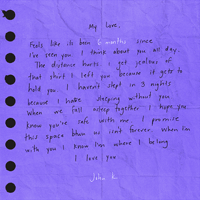 My love,
Feels like its been 6 months since
I've seen you. I think about you all day.
The distance hurts. I get jealous of
that shirt I left you because it gets to
hold you. I haven't slept in 3 nights
because I hate sleeping without you.
When we fall asleep together I hope you
know you're safe with me. I promise
this space between us isn't forever. When I'm
with you I know I'm where I belong
I love you
John K